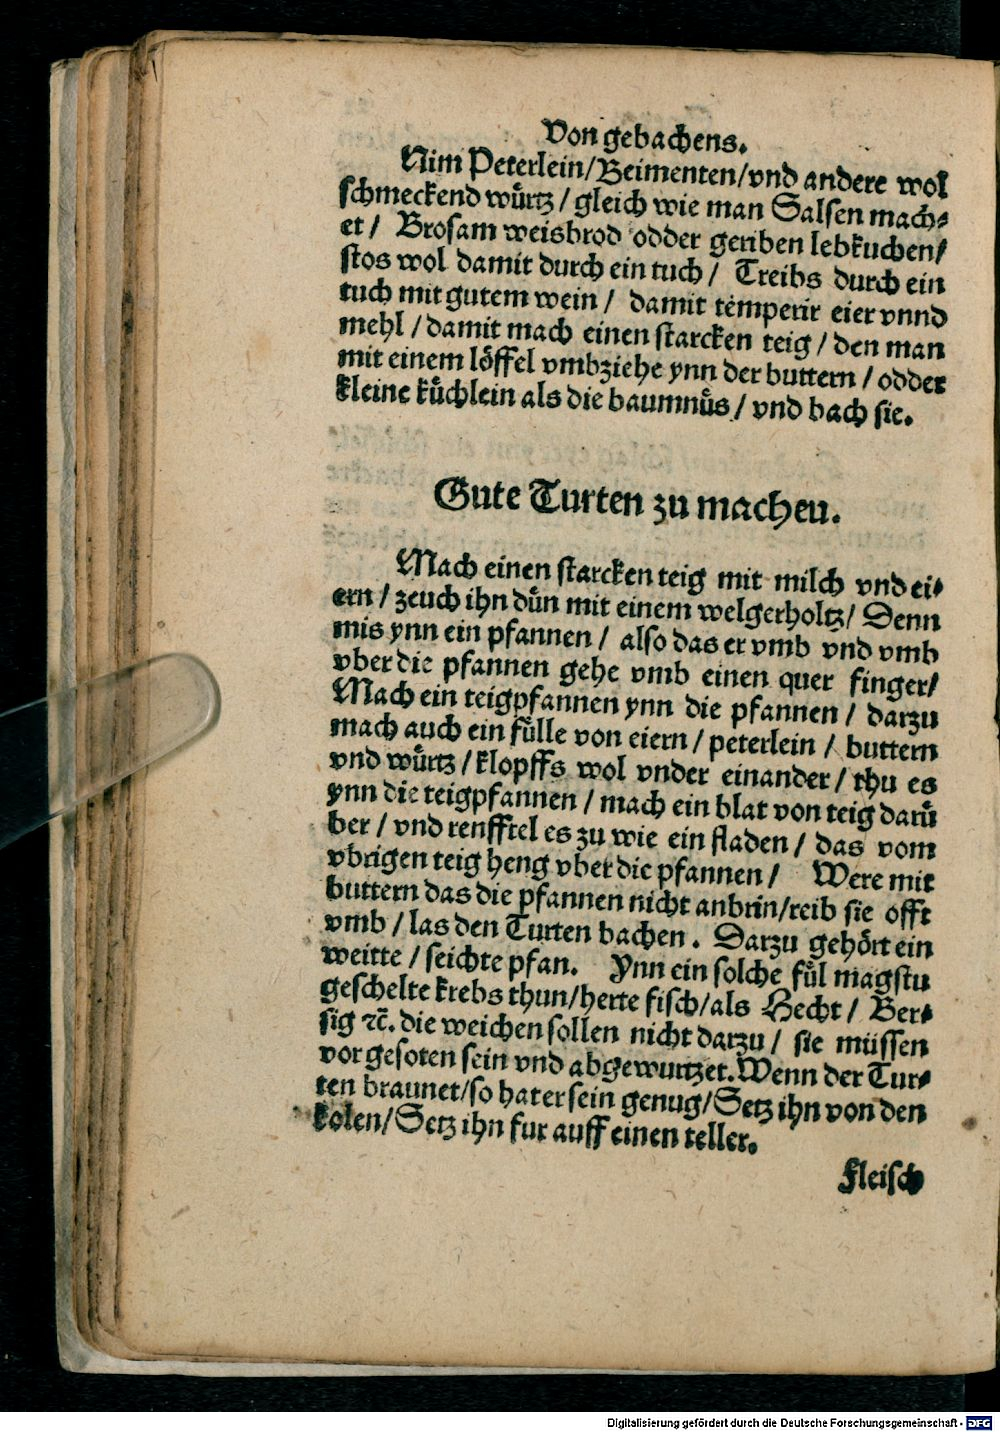 Von gebachens.
Nim Peterlein/Beimenten/vnd andere wol
schmeckend wuͤrtz / gleich wie man Salsen mach⸗
et / Brosam weisbrod odder geriben lebkuchen/
stos wol damit durch ein tuch / Treibs durch ein
tuch mit gutem wein / damit temperir eier vnnd
mehl / damit mach einen starcken teig / den man
mit einem loͤffel vmbziehe ynn der buttern / odder
kleine kuͤchlein als die baumnuͤs / vnd bach sie.
Gute Turten zu macheu.
Mach einen starcken teig mit milch vnd ei⸗
ern / zeuch ihn duͤn mit einem welgerholtz/ Denn
mis ynn ein pfannen / also das er vmb vnd vmb
vber die pfannen gehe vmb einen quer finger/
Mach ein teigpfannen ynn die pfannen / darzu
mach auch ein fuͤlle von eiern / peterlein / buttern
vnd wuͤrtz / klopffs wol vnder einander / thu es
ynn die teigpfannen / mach ein blat von teig daruͤ
ber / vnd renfftel es zu wie ein fladen / das vom
vbrigen teig heng vber die pfannen / Were mit
buttern das die pfannen nicht anbrin/reib sie offt
vmb / las den Turten bachen. Darzu gehoͤrt ein
weitte / seichte pfan. Ynn ein solche fuͤl magstu
geschelte krebs thun/herte fisch/als Hecht / Ber⸗
sig ⁊c̃. die weichen sollen nicht darzu / sie muͤssen
vor gesoten sein vnd abgewurtzet. Wenn der Tur⸗
ten braunet/so hat er sein genug/Setz ihn von den
kolen/Setz ihn fur auff einen teller.
Fleisch
Digitalisierung gefördert durch die Deutsche Forschungsgemeinschaft - DFG